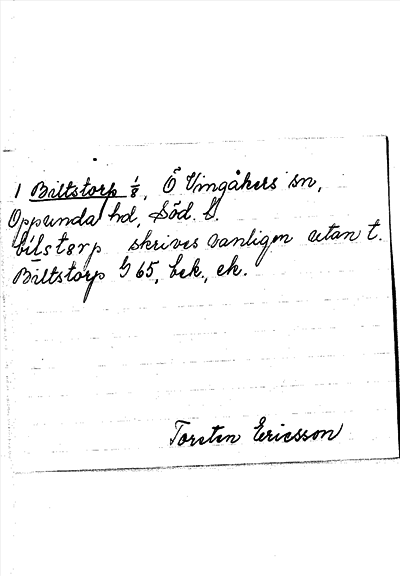 1 Biltstorp 1/8, Ö Vingåkers sn,
Oppunda hd, Söd. l.
bilstorp skrives vanligen utan t.
Biltstorp G 65, bek., ek.
Torsten Ericsson